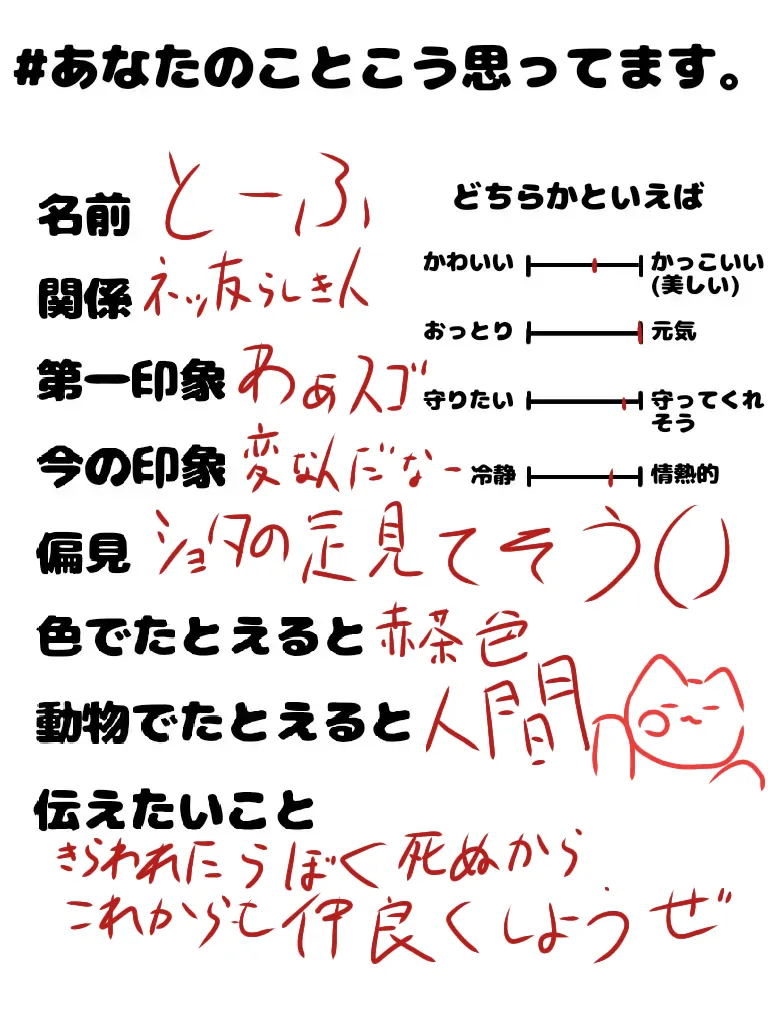 #あなたのことこう思ってます。
名前 とーふ
関係 ネッ友らしき人
第一印象 わぁスゴ
今の印象 変な人だなー
偏見 ショタの足見てそう()
色でたとえると 赤茶色
動物でたとえると 人間
どちらかといえば
かわいい かっこいい
(美しい)
おっとり 元気
守りたい 守ってくれ
そう
冷静 情熱的
伝えたいこと
きらわれたらぼく死ぬから
これからも仲良くしようぜ